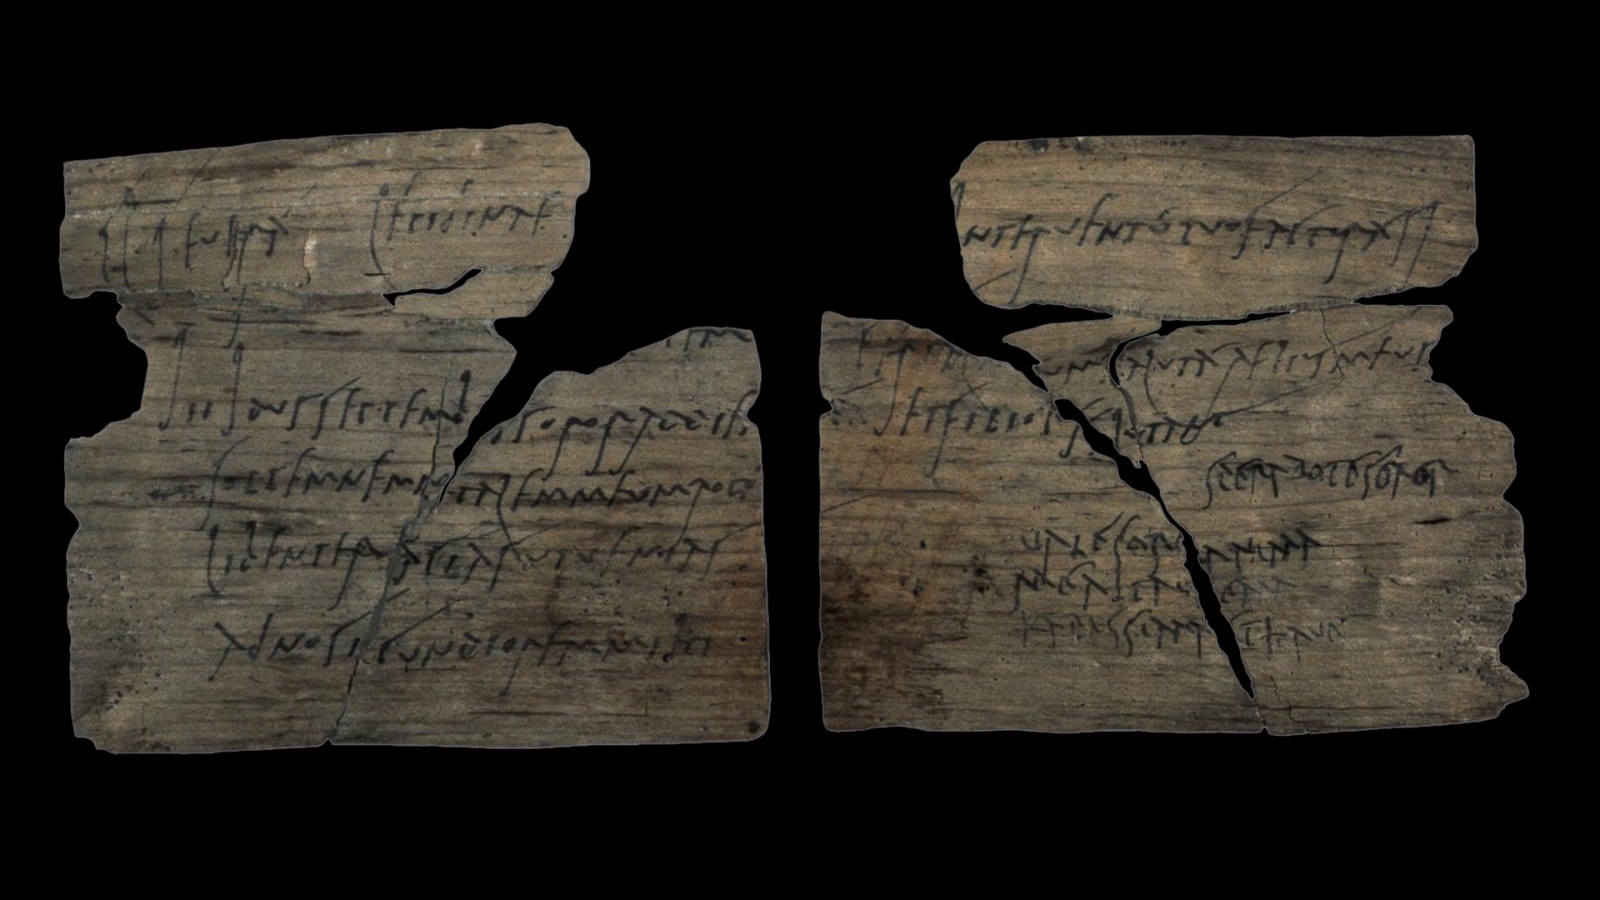 Cl Seuerá Lepidinae
iii Idus Septembr soror ad diem
sollemnem natalem meum rogo
libenter facias ut uenias
ad nos iucundiorem mihi
interuentú tuo factura si
tuum saluta Aelius meus
et filiolus salutant
sperabo te soror
uale soror anima
mea ita ualeam
karissima et haue